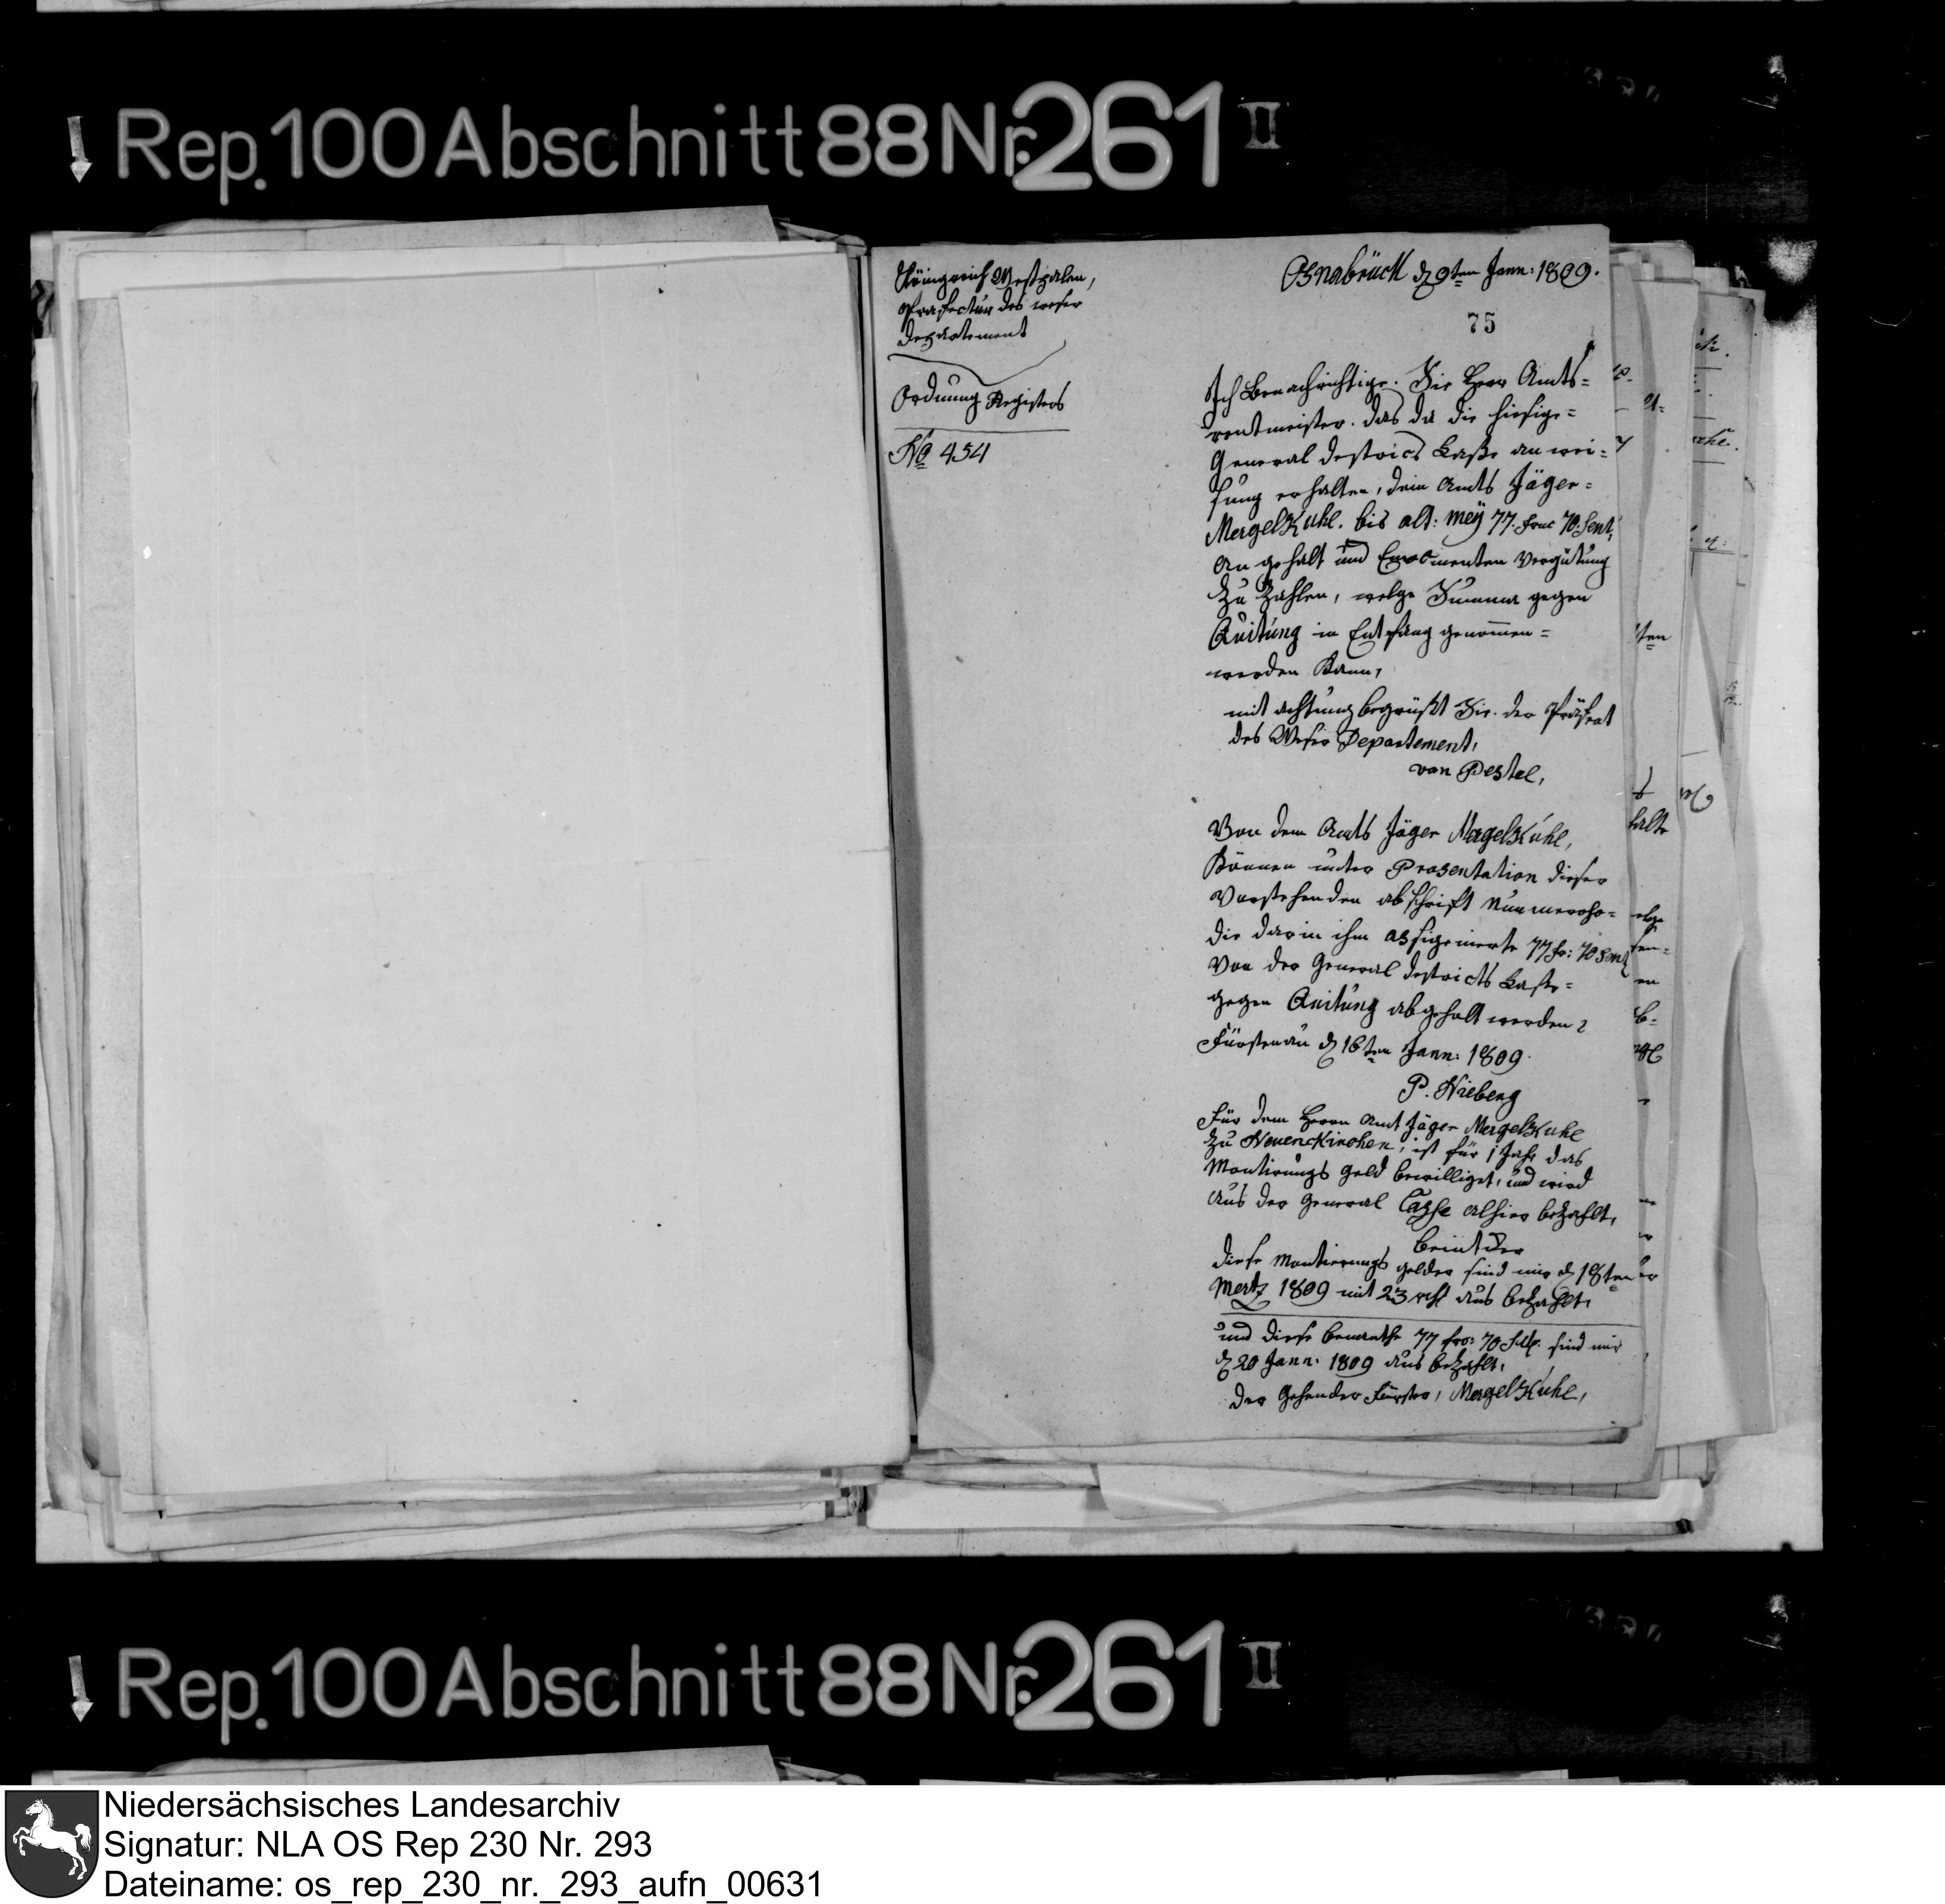 Rep. 100 Abschnitt 88 Nr. 261 II
Köingreich Westpalen,
Præfectur des weser
Departement
Ordnung Registers
No 454
Osnabrück d 9ten Jann: 1809.
75
Ich Benachrichtige. Sie Herr Amts=
rentmeister. das da die hiesige=
General Destrics Casse an wei=
sung erhalten, dem Amts Jäger=
MergelKuhl. bis alt: Meÿ 77. franc 70. Sent,
an gehalt und Vergütung
zu Zahlen, welge Summa gegen
Quitung in Entfang genommen=
werden Kann,
mit achtung begrüßt Sie. der Präfeat
des Weser Departement,
von Pestel,
Von dem Amts Jäger MergelKuhl,
Können unter Prosentation dieser
Vorstehenden abschrift Nunmeroho=
die darin ihm assigenierte 77 fr: 70 Sent
Von der General Destricts Casse=
gegen Quitung abgeholt werden?
Fürstenau d 16ten Jann: 1809.
P. Nieberg
Für dem Herrn Amt Jäger MergelKuhl
zu Neuenckirchen, ist für 1 Jahr das
Montirungs geld bewilliget, und wird
aus der General Casse alhier bezahlt,
diese Montierungs gelder sind mir d 18ten
Mertz 1809 mit 23 rthl aus bezahlt,
und diese benanthe 77 fro: 70 sind mir
d 20 Jann. 1809 aus bezahlt,
der Gehender Fürster, MergelKuhl,
Rep. 100 Abschnitt 88 Nr. 261 II
Niedersächsisches Landesarchiv
Signatur: NLA OS Rep 230 Nr. 293
Dateiname: os_rep_230_nr._293_aufn_00631